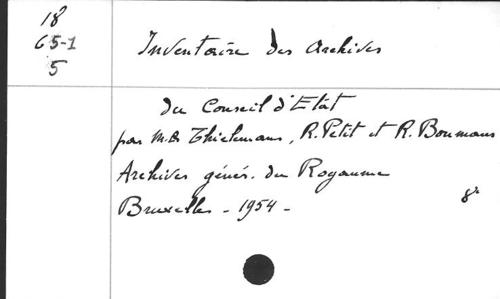 18
65-1
5
Inventaire des Archives
du Conseil d'Etat
par M.R. Thielemans, R. Petit et R. Boumans
Archives génér. du Royaume
Bruxelles - 1954 -
8º